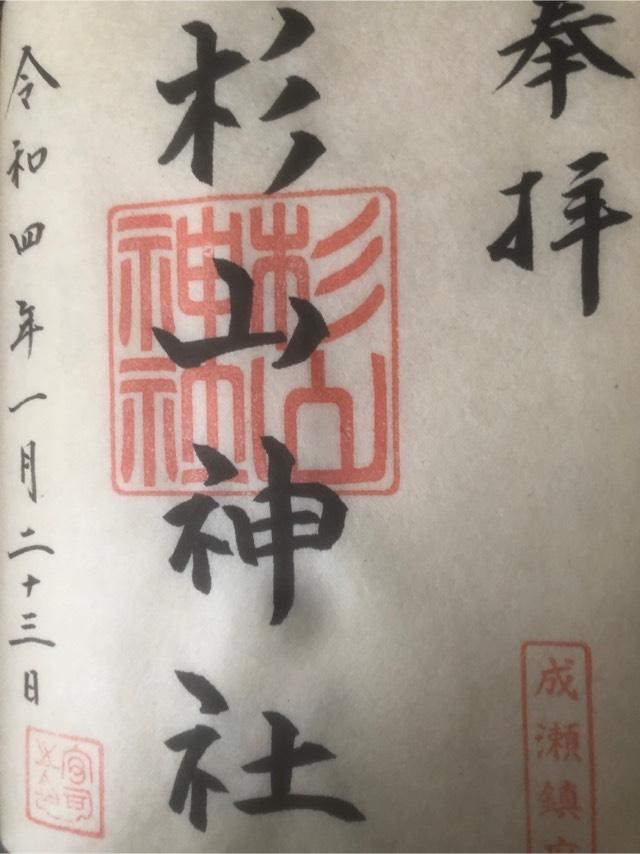 奉拝
成瀬鎮
杉山神社
杉山神社
令和四年一月二十三日